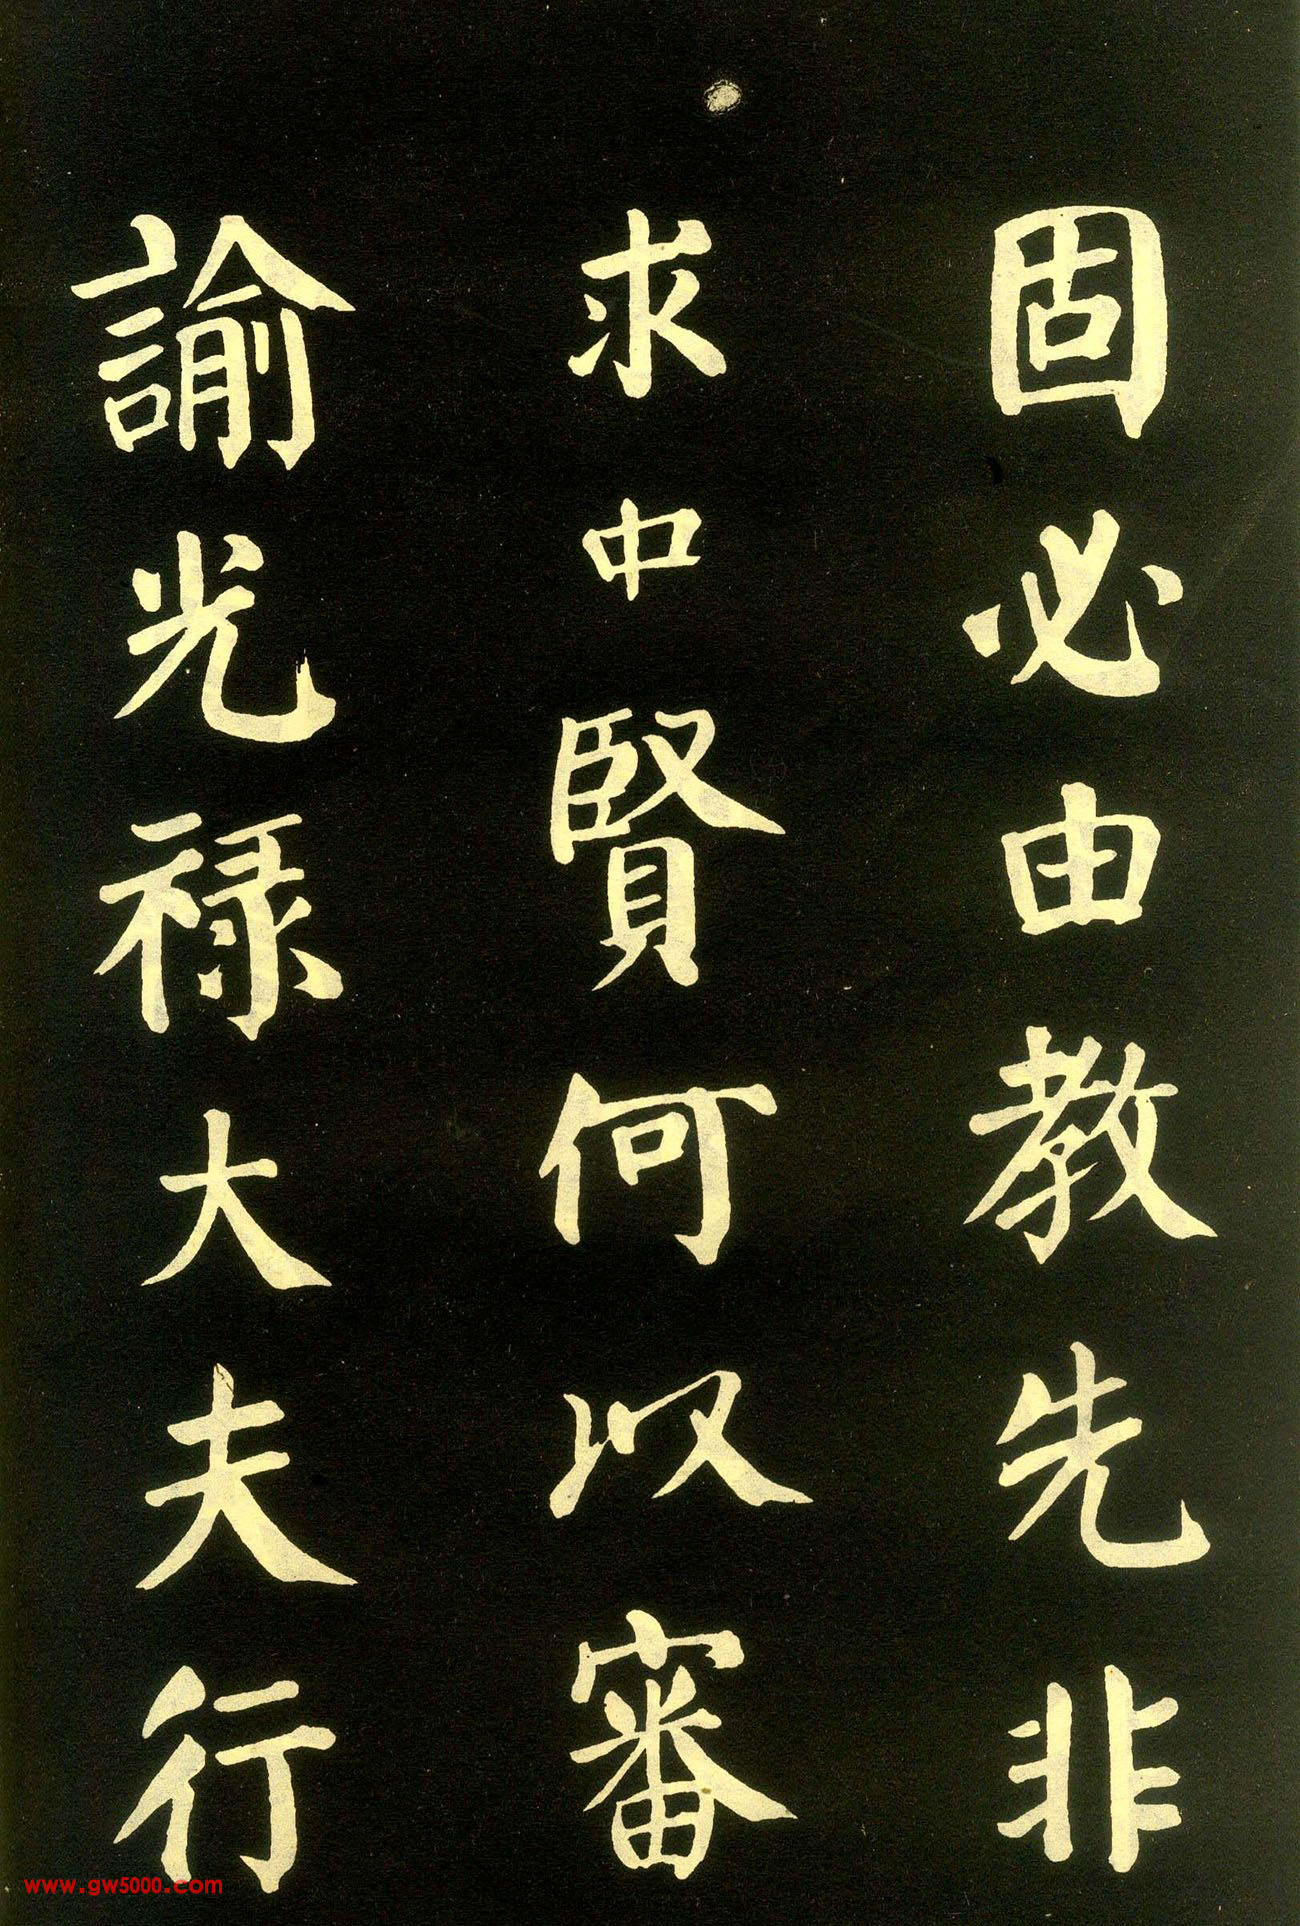 固必由教先非
求中賢何以審
諭光祿大夫行
www.gw5000.com